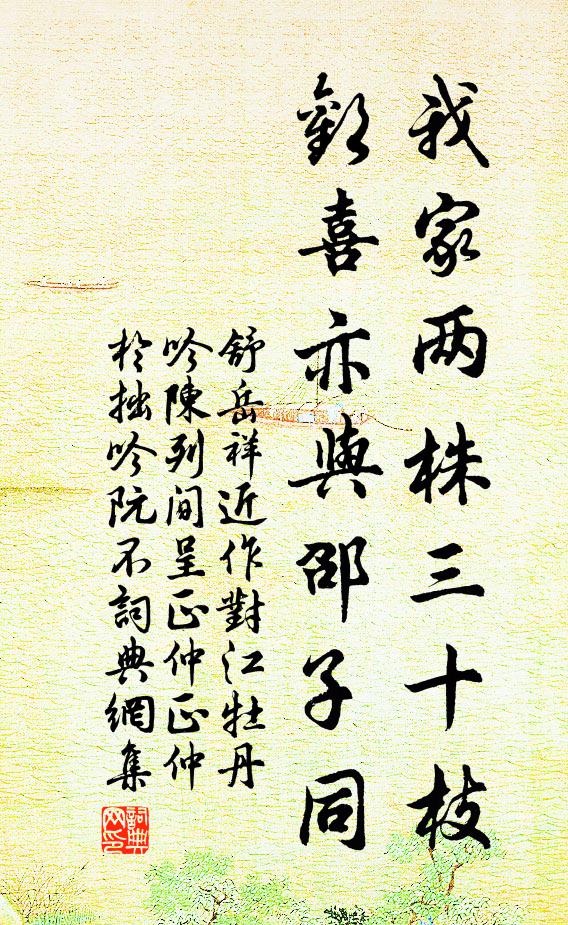 我家两株三十枝
歡喜亦與邵子同
舒岳祥近作對江牡丹
吟陳列间呈正仲正仲
於拙吟阮不詞典網集
詞典
网印